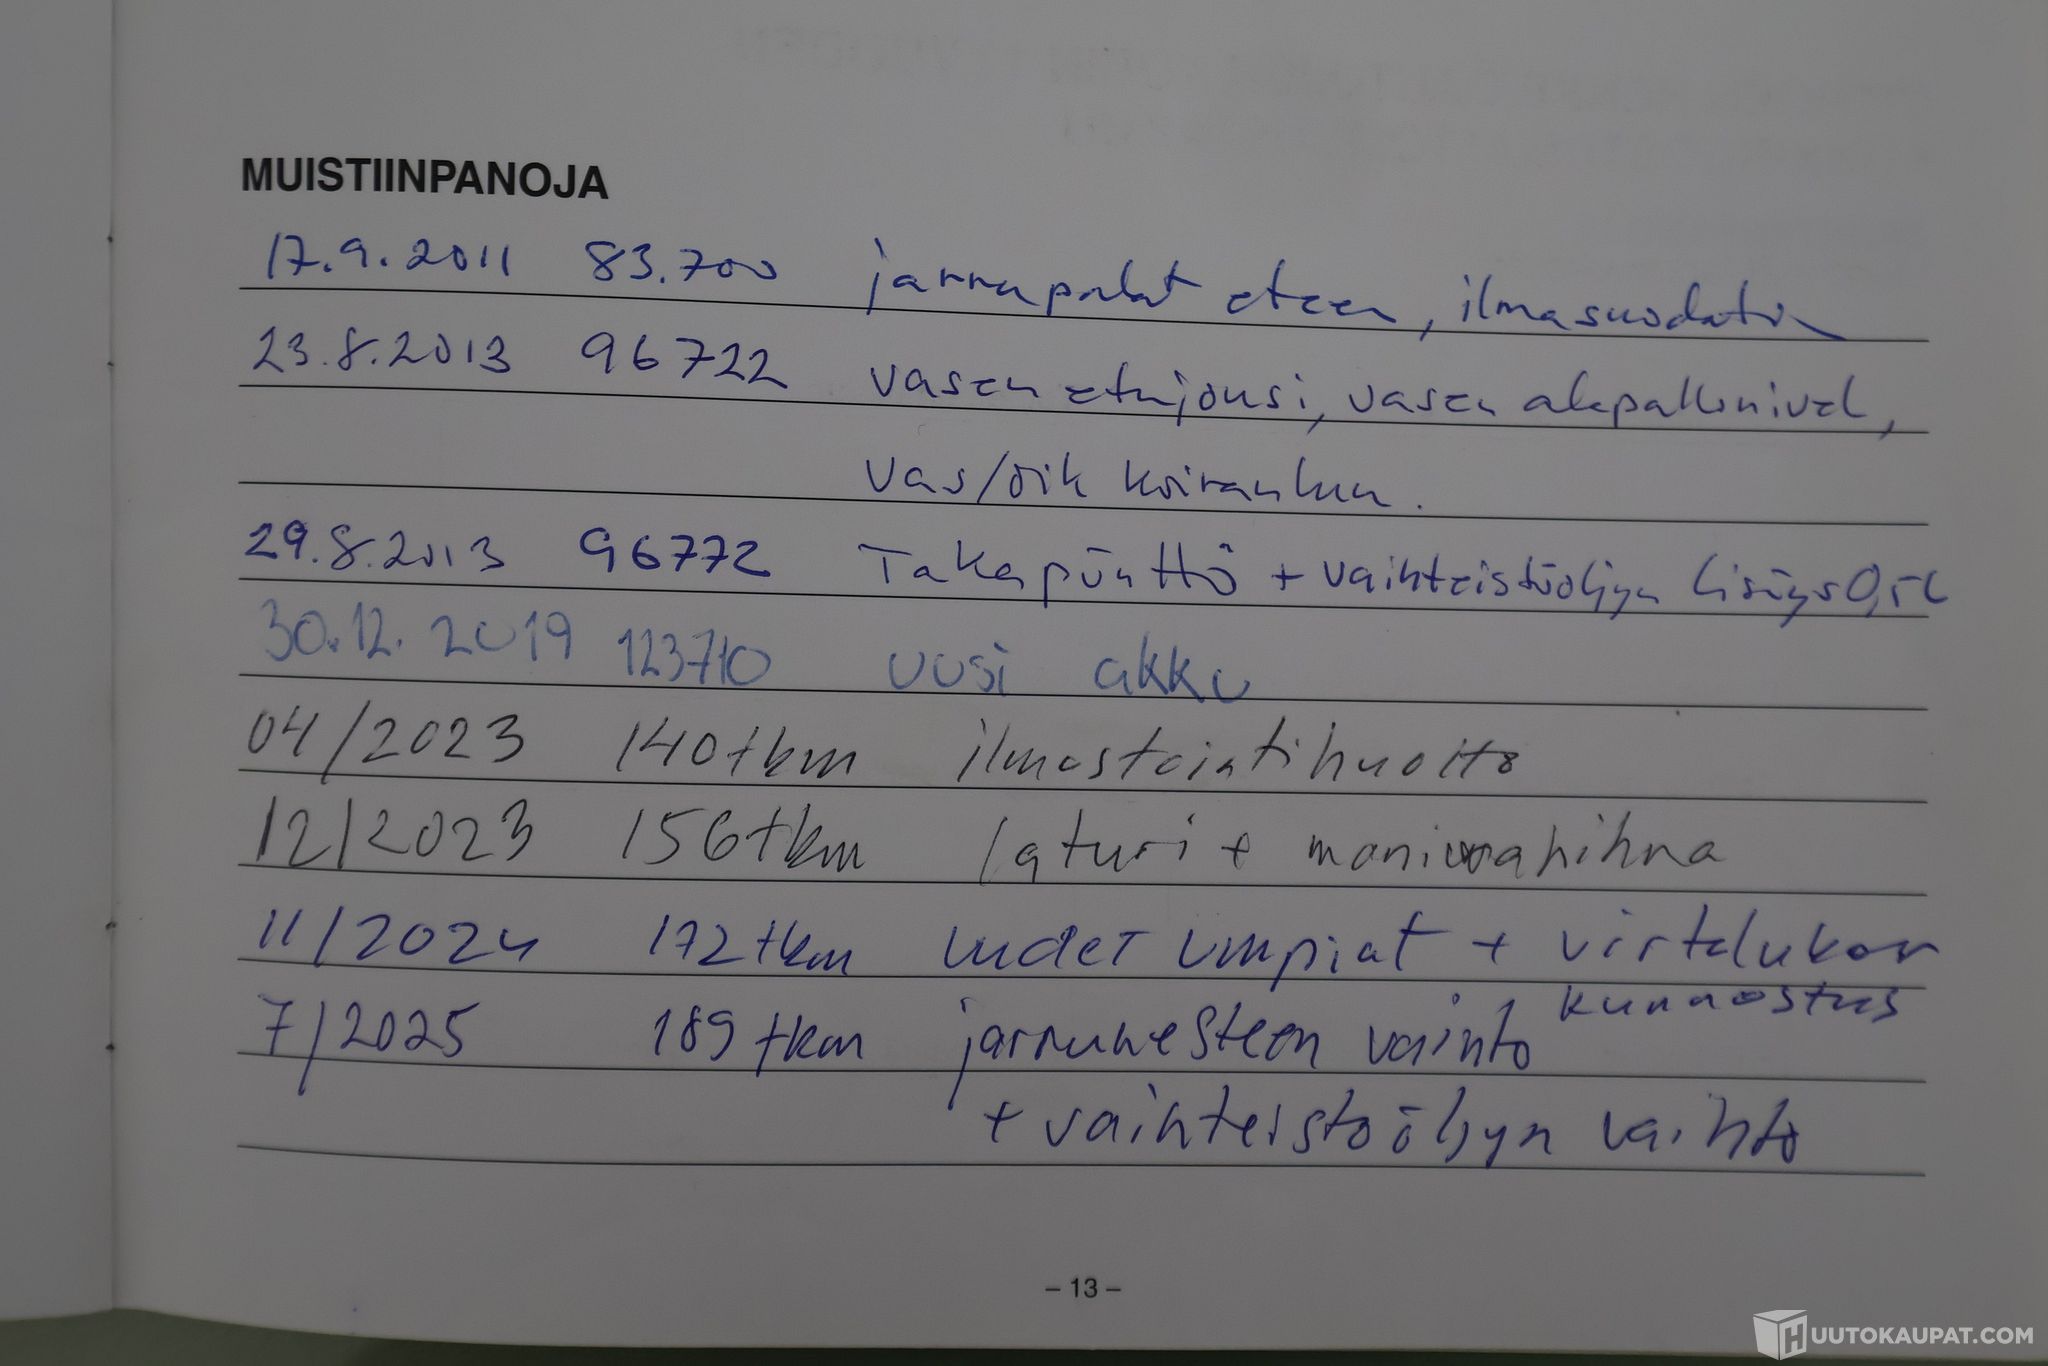 MUISTIINPANOJA
17.9.2011 83.700 jarrupalat eteen, ilmasuodatin
23.8.2013 96722 vasen etujousi, vasen alapallonivel,
vas/oik koiranluu.
29.8.2013 96772 Takapönttö + vaihteistoöljyn lisäys 0,5L
30.12.2019 123710 uusi akku
04/2023 140tkm ilmastointihuolto
12/2023 156tkm laturi + moniurahihna
11/2024 172tkm uudet umpiot + virtalukon
kunnostus
7/2025 189tkm jarrunesteen vaihto
+ vaihteistoöljyn vaihto
– 13 –
HUUTOKAUPAT.COM